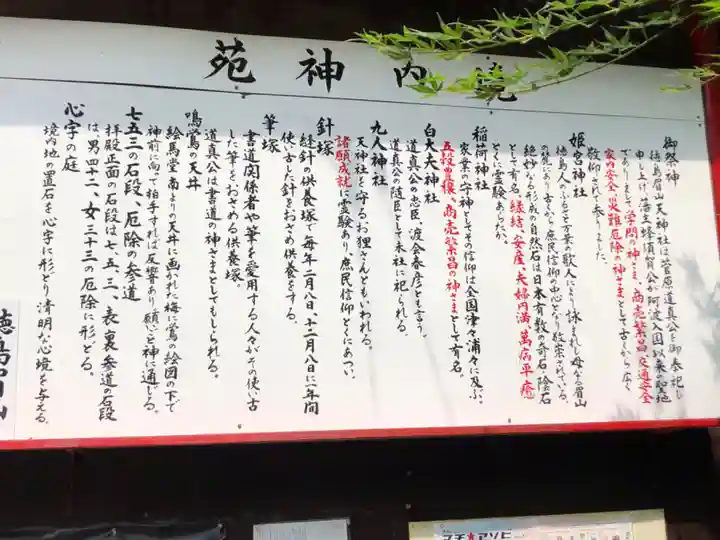 境内神苑
御祭神
徳島眉山天神社は菅原道真公を御奉祀し
申し上げ、藩主蜂須賀公が阿波入国以来の聖地
でありまして学問の神さま、商売繁昌、交通安全
家内安全、火難厄除の神さまとして古くから広く
敬仰されて参りました。
姫宮神社
徳島人のふるさと万葉の歌人により詠まれし母なる眉山
の院にあり古くから庶民信仰の心となり敬崇されている。
絶妙なる形成の自然石は日本有数の奇石・陰石
として有名、縁結、安産、夫婦円満、萬病平癒
とくに霊験あらたか。
稲荷神社
家業の守神としてその信仰は全国津々浦々に及ぶ。
五穀豊穣、商売繁昌の神さまとして有名。
白大夫神社
道真公の忠臣、渡会春彦とも言う。
道真公の随臣として末社に祀られる。
九八神社
天神社を守るお狸さんともいわれる。
諸願成就に霊験あり、庶民信仰とくにあつい。
針塚
縫針の供養塚で毎年二月八日、十二月八日に年間
使い古した針をおさめ供養をする。
筆塚
書道関係者や筆を愛用する人々がその使い古
した筆をおさめる供養塚。
道真公は書道の神さまとしてもしられる。
鳴鴬の天井
絵馬堂南よりの天井に画かれた梅に鴬の絵図の下で
神前に向って拍手すれば反響あり願いを神に通じる。
七五三の石段、厄除の参道
拝殿正面の石段は七、五、三、表、裏参道の石段
は男四十二、女三十三の厄除に形どる。
心字の庭
境内地の置石を心字に形どり清明な心境を与える。
徳島眉山
マチ★アソビ